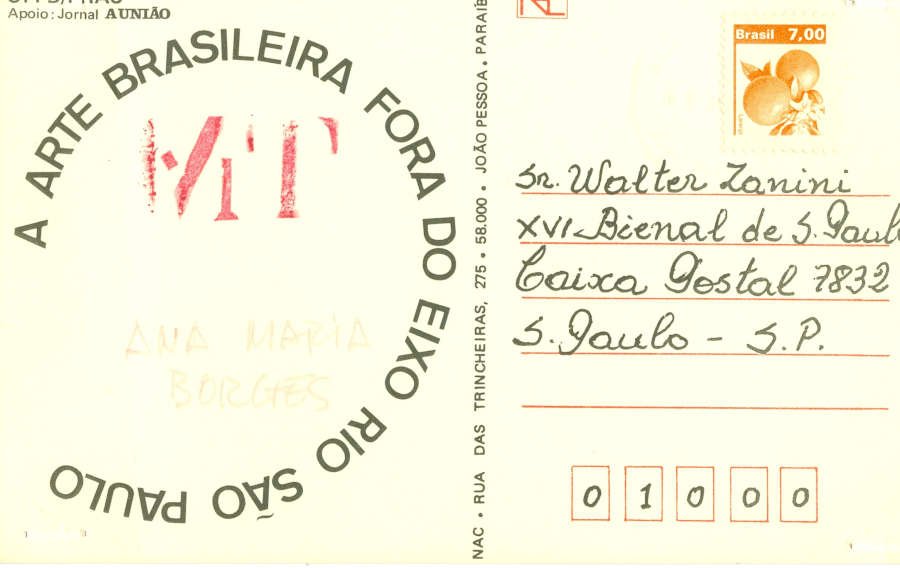 Apoio: Jornal A UNIÃO
A ARTE BRASILEIRA FORA DO EIXO RIO SÃO PAULO
MT
ANA MARIA
BORGES
NAC • RUA DAS TRINCHEIRAS, 275 • 58.000 • JOÃO PESSOA • PARAÍB
Brasil 7,00
Sr. Walter Zanini
XVI-Bienal de S. Paulo
Caixa Postal 7832
S. Paulo - S.P.
0 1 0 0 0